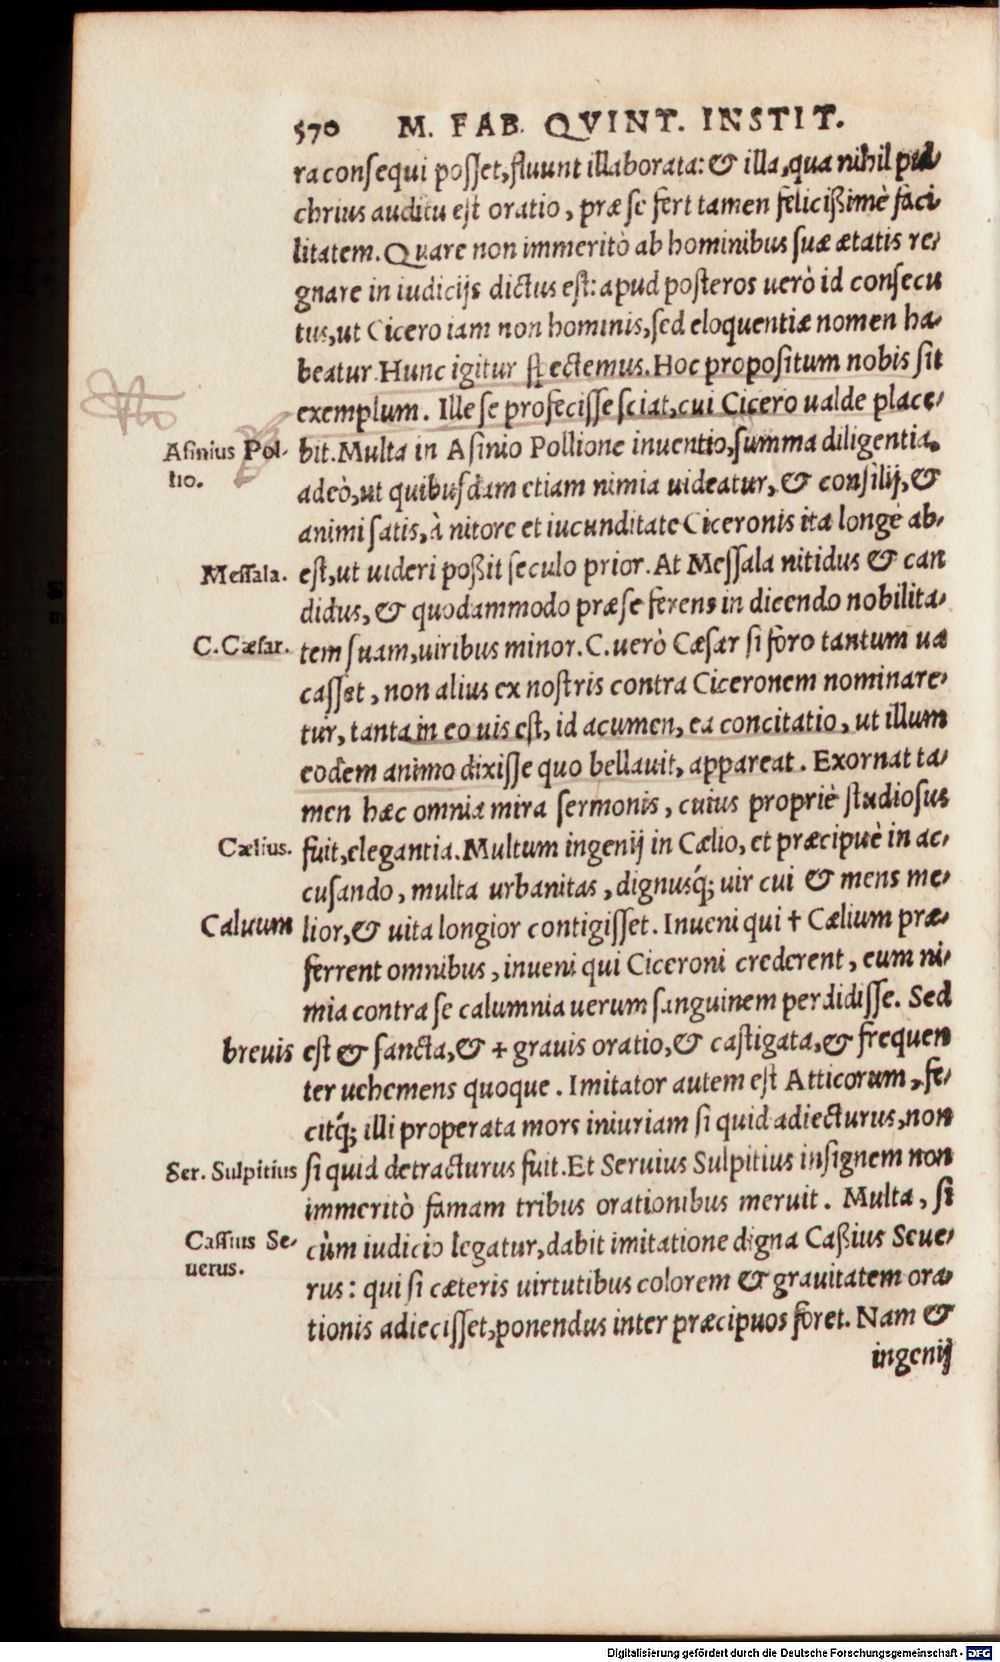 570 M. FAB. QVINT. INSTIT.
ra consequi posset, fluunt illaborata: & illa, qua nihil pul
chrius auditu est oratio, præ se fert tamen felicißimè faci-
litatem. Quare non immeritò ab hominibus suæ ætatis re-
gnare in iudicijs dictus est: apud posteros uerò id consecu
tus, ut Cicero iam non hominis, sed eloquentiæ nomen ha-
beatur. Hunc igitur spectemus. Hoc propositum nobis sit
exemplum. Ille se profecisse sciat, cui Cicero ualde place-
Asinius Pol-
lio.
bit. Multa in Asinio Pollione inuentio, summa diligentia,
adeò, ut quibusdam etiam nimia uideatur, & consilij, &
animi satis, à nitore et iucunditate Ciceronis ita longè ab-
Messala. est, ut uideri poßit seculo prior. At Messala nitidus & can
didus, & quodammodo præ se ferens in dicendo nobilita-
C. Cæsar. tem suam, uiribus minor. C. uerò Cæsar si foro tantum ua
casset, non alius ex nostris contra Ciceronem nominare-
tur, tanta in eo uis est, id acumen, ea concitatio, ut illum
eodem animo dixisse quo bellauit, appareat. Exornat ta-
men hæc omnia mira sermonis, cuius propriè studiosus
Cælius. fuit, elegantia. Multum ingenij in Cælio, et præcipuè in ac-
cusando, multa urbanitas, dignusq́; uir cui & mens me-
Caluum lior, & uita longior contigisset. Inueni qui † Cælium præ-
ferrent omnibus, inueni qui Ciceroni crederent, eum ni-
mia contra se calumnia uerum sanguinem perdidisse. Sed
breuis est & sancta, & + grauis oratio, & castigata, & frequen
ter uehemens quoque. Imitator autem est Atticorum, fe-
citq́; illi properata mors iniuriam si quid adiecturus, non
Ser. Sulpitius si quid detracturus fuit. Et Seruius Sulpitius insignem non
immeritò famam tribus orationibus meruit. Multa, si
Cassius Se-
uerus.
cùm iudicio legatur, dabit imitatione digna Caßius Seue-
rus: qui si cæteris uirtutibus colorem & grauitatem ora-
tionis adiecisset, ponendus inter præcipuos foret. Nam &
ingenij
Digitalisierung gefördert durch die Deutsche Forschungsgemeinschaft - DFG